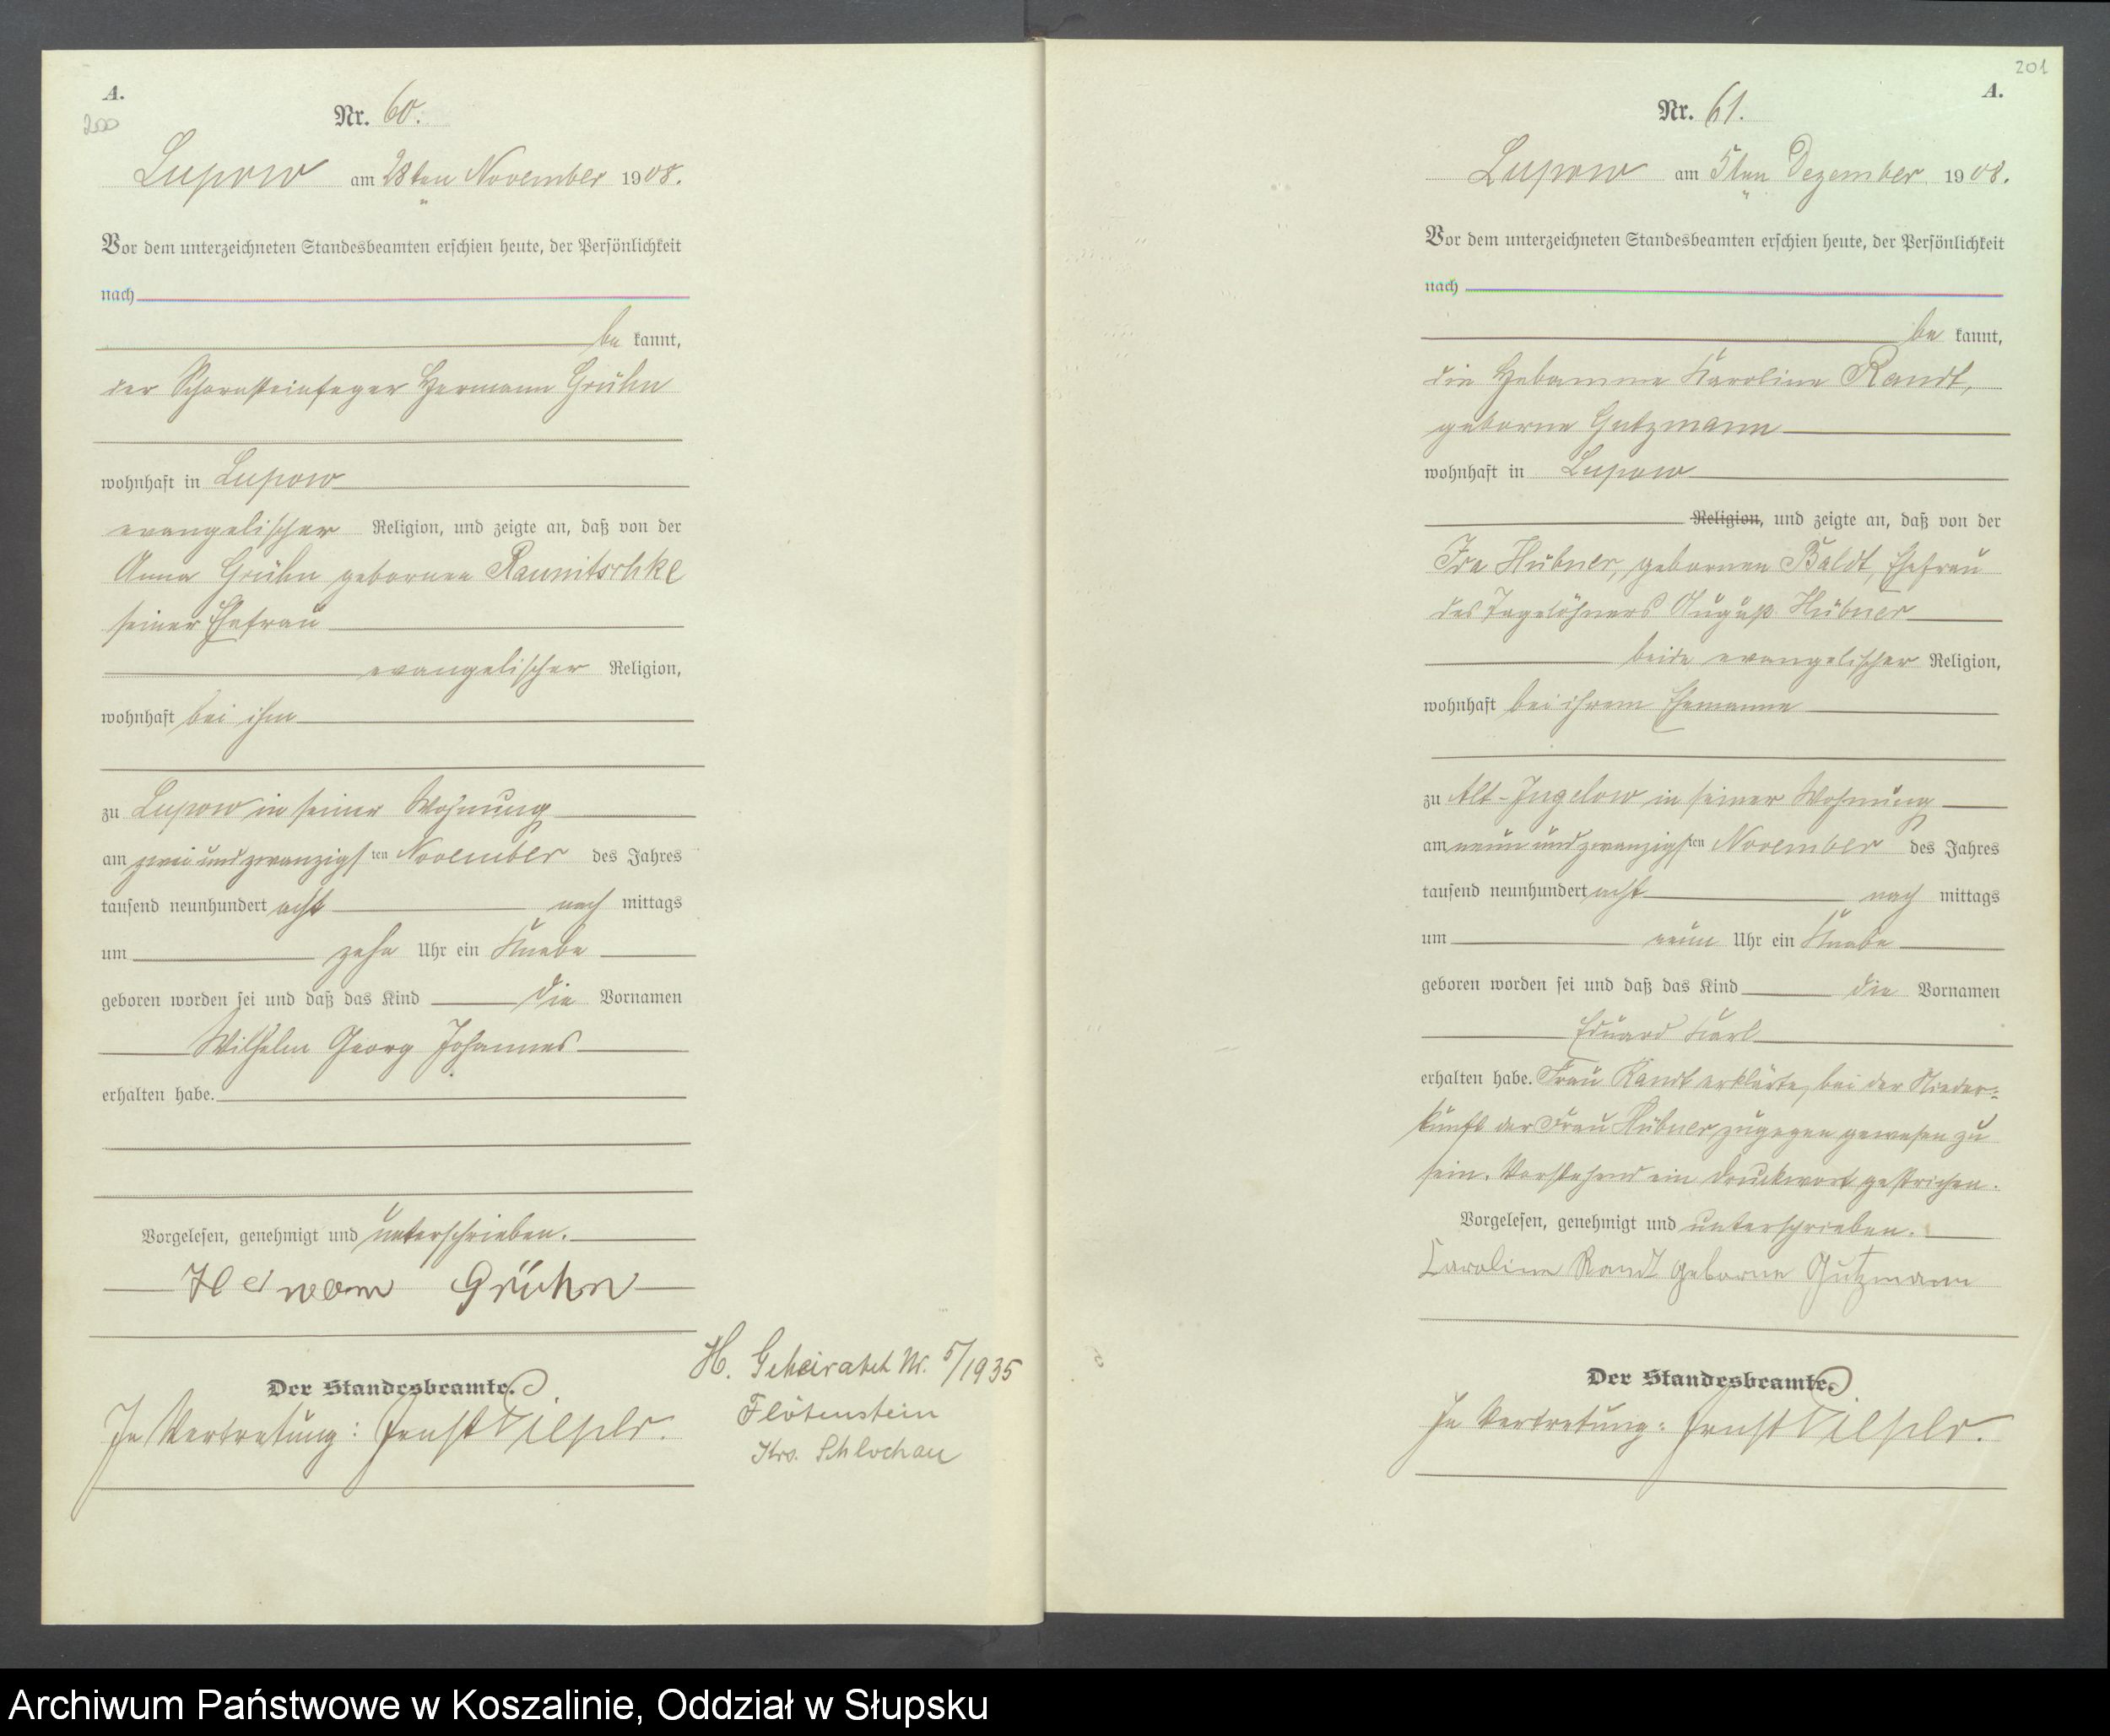 A.
200
Nr. 60.
Lupow am 28ten November 1908.
Vor dem unterzeichneten Standesbeamten erschien heute, der Persönlichkeit
nach
be kannt,
der Schornsteinfeger Hermann Grühn
wohnhaft in Lupow
evangelischer Religion, und zeigte an, daß von der
Anna Grühn gebornen Raumitschke
seiner Ehefrau
evangelischer Religion,
wohnhaft bei ihm
zu Lupow in seiner Wohnung
am zwei und zwanzigsten November des Jahres
tausend neunhundert acht nach mittags
um zehn Uhr ein Knabe
geboren worden sei und daß das Kind die Vornamen
Wilhelm Georg Johannes
erhalten habe.
Vorgelesen, genehmigt und unterschrieben.
Hermann Grühn
Der Standesbeamte.
In Vertretung: Ernst
H. Geheiratet Nr. 5/1935
Flötenstein
Krs. Schlochau
201
A.
Nr. 61.
Lupow am 5ten Dezember 1908.
Vor dem unterzeichneten Standesbeamten erschien heute, der Persönlichkeit
nach
be kannt,
die Hebamme Karoline Randt,
geborne Gutzmann
wohnhaft in Lupow
Religion, und zeigte an, daß von der
Ida Hübner, gebornen Baldt, Ehefrau
des Tagelöhners August Hübner
beide evangelischer Religion,
wohnhaft bei ihrem Ehemanne
zu Alt-Jugelow in seiner Wohnung
am neun und zwanzigsten November des Jahres
tausend neunhundert acht nach mittags
um neun Uhr ein Knabe
geboren worden sei und daß das Kind die Vornamen
Eduard Karl
erhalten habe. Frau Randt erklärte, bei der Nieder=
kunft der Frau Hübner zugegen gewesen zu
sein. Vorstehend ein Druckwort gestrichen.
Vorgelesen, genehmigt und unterschrieben.
Caroline Randt geborne Gutzmann
Der Standesbeamte.
In Vertretung: Ernst
Archiwum Państwowe w Koszalinie, Oddział w Słupsku